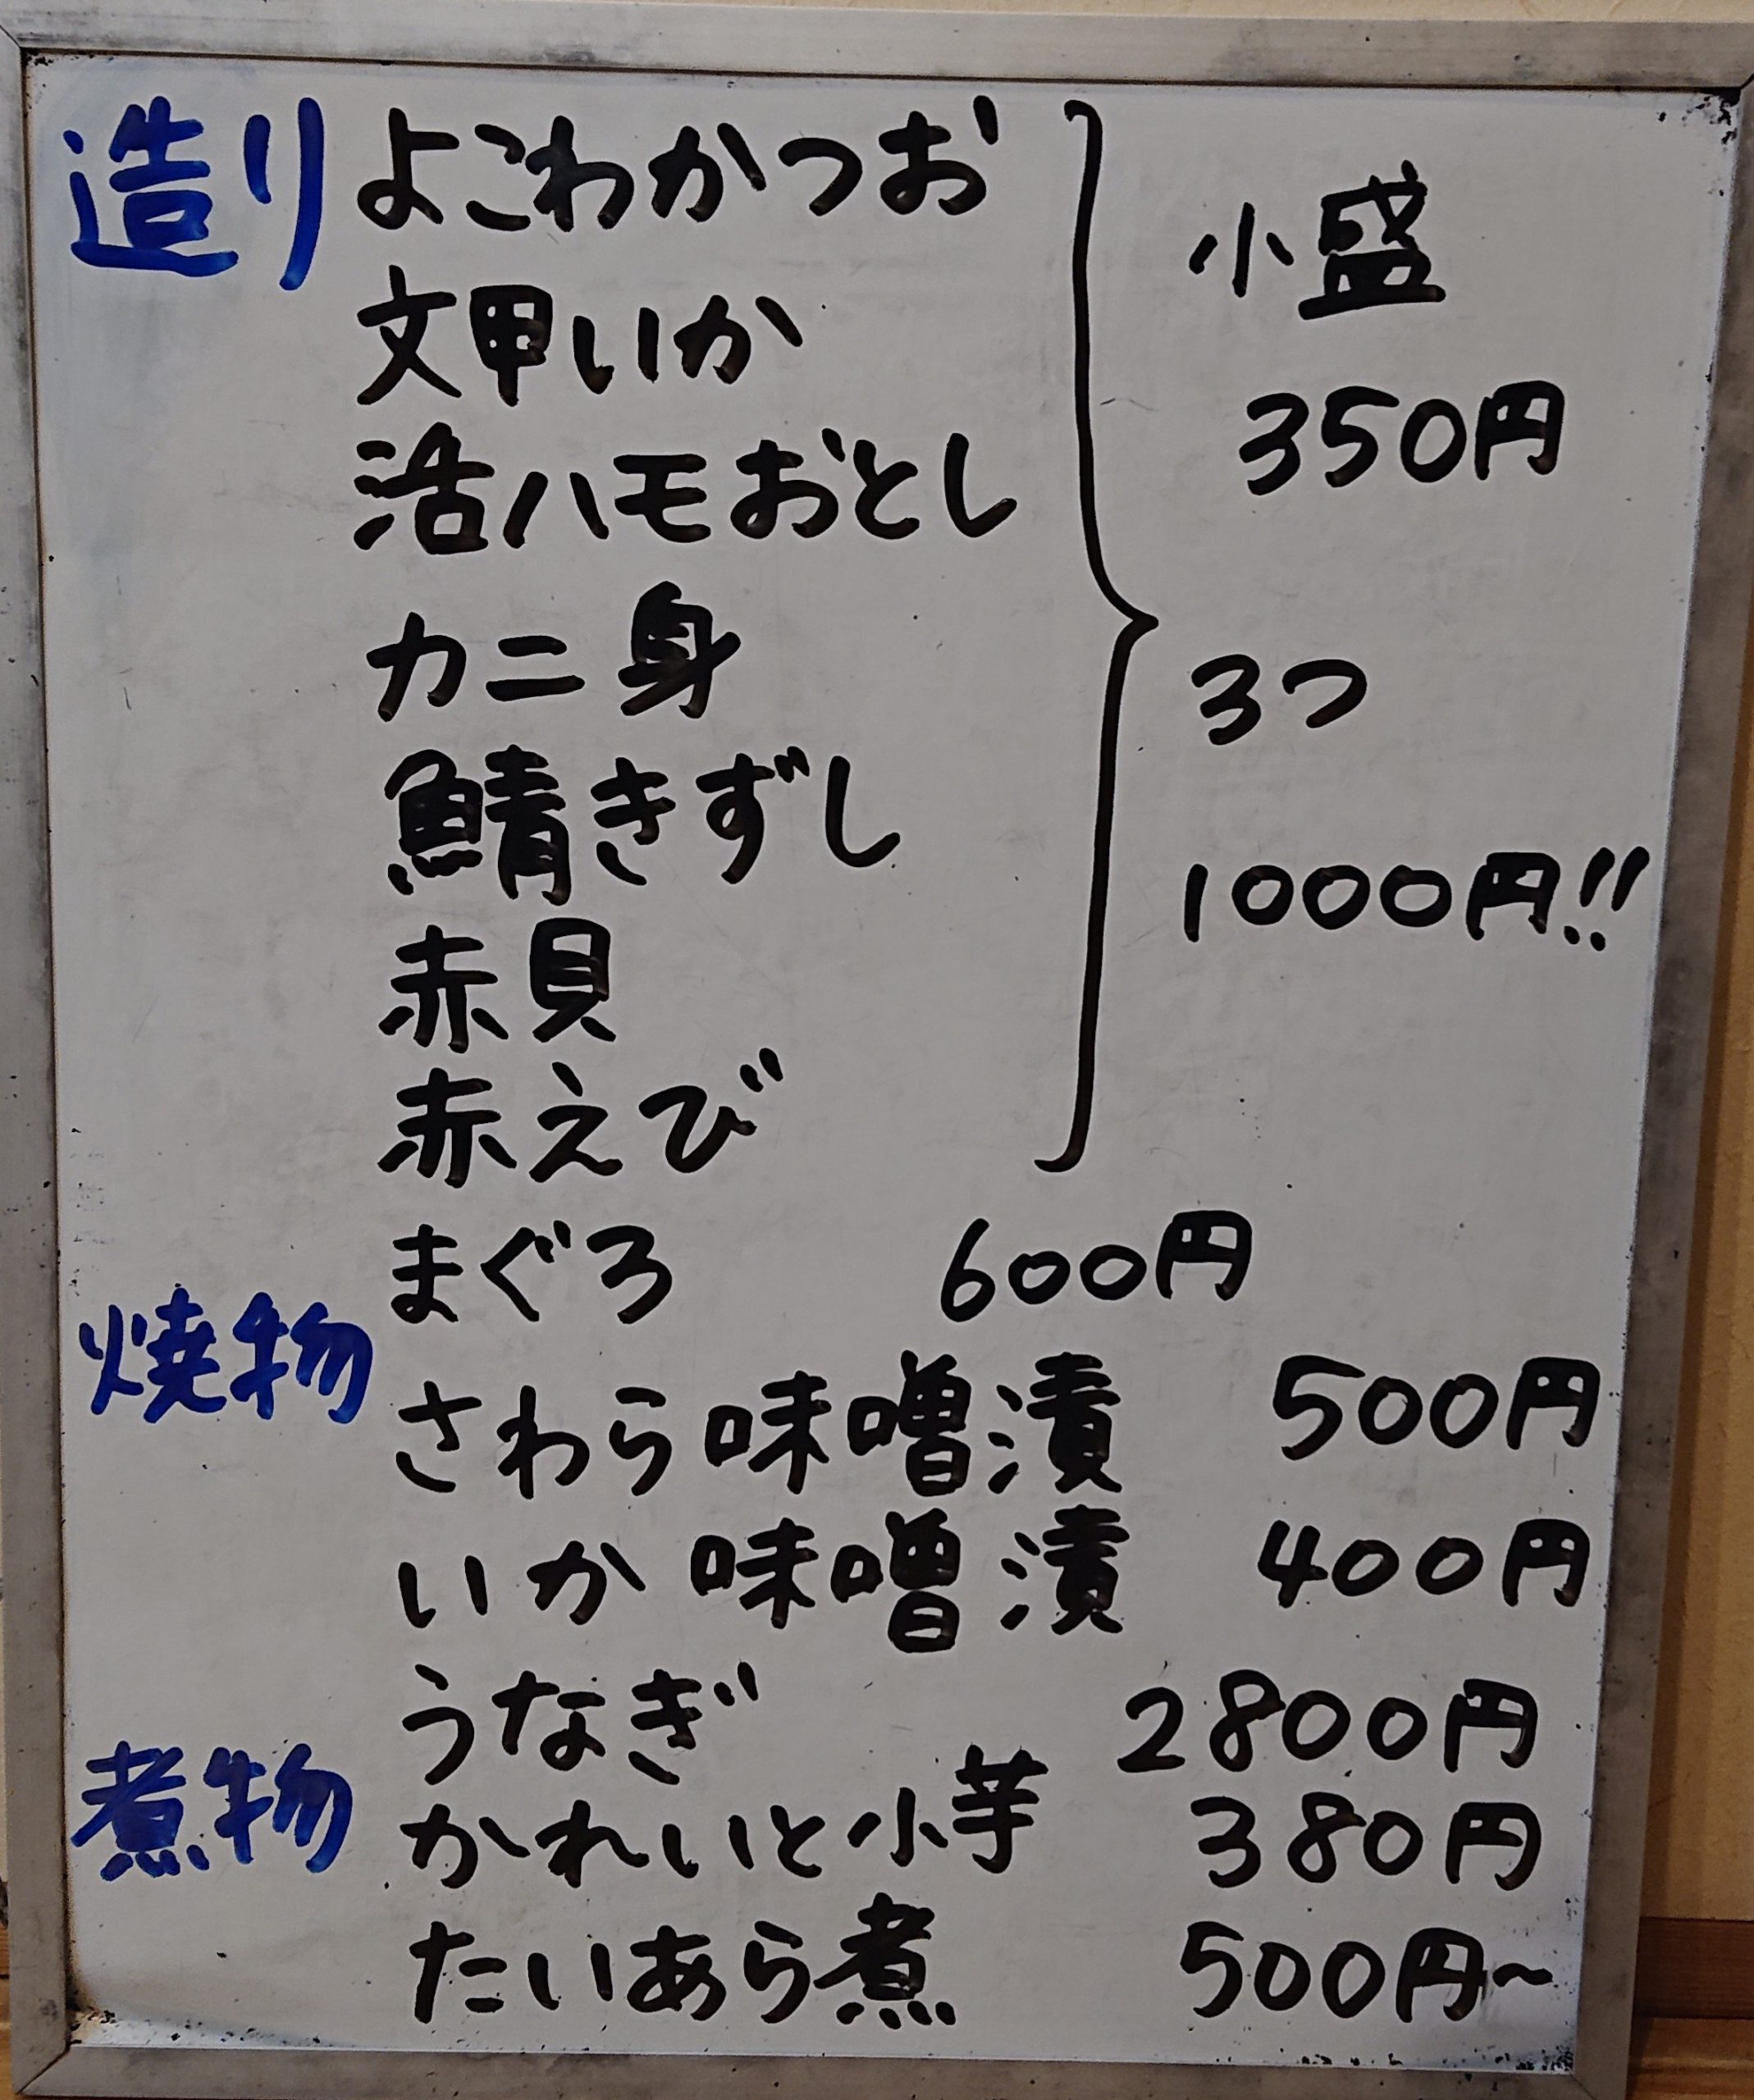 造り よこわかつお
文甲いか
活ハモおとし
カニ身
鯖きずし
赤貝
赤えび
小盛
350円
3つ
1000円!!
まぐろ 600円
焼物
さわら味噌漬 500円
いか味噌漬 400円
うなぎ 2800円
煮物
かれいと小芋 380円
たいあら煮 500円~